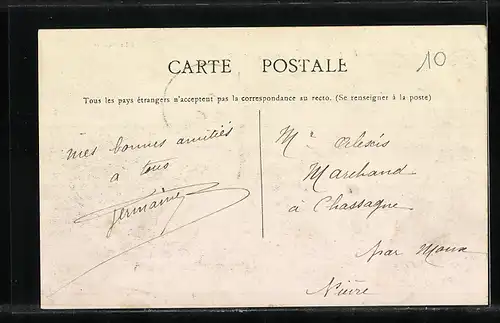 10
CARTE POSTALE
Tous les pays étrangers n'acceptent pas la correspondance au recto. (Se renseigner à la poste)
mes bonnes amitiés
a tous
Germaine
Mr Alexis
Marchand
à Chassagne
par Moux
Nièvre